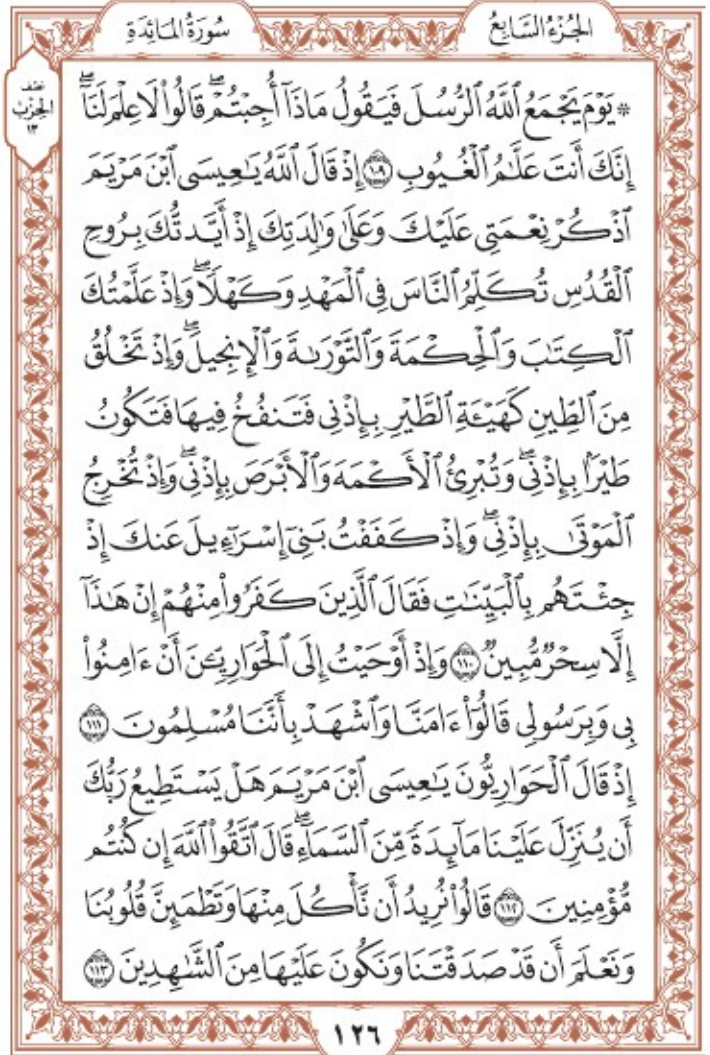 الجُزْءُ السَّابِعُ
سُورَةُ المَائِدَةِ
نصف
الحِزْب
١٣
۞ يَوْمَ يَجْمَعُ ٱللَّهُ ٱلرُّسُلَ فَيَقُولُ مَاذَآ أُجِبْتُمْ ۖ قَالُوا۟ لَا عِلْمَ لَنَآ ۖ
إِنَّكَ أَنتَ عَلَّـٰمُ ٱلْغُيُوبِ ١٠٩ إِذْ قَالَ ٱللَّهُ يَـٰعِيسَى ٱبْنَ مَرْيَمَ
ٱذْكُرْ نِعْمَتِى عَلَيْكَ وَعَلَىٰ وَٰلِدَتِكَ إِذْ أَيَّدتُّكَ بِرُوحِ
ٱلْقُدُسِ تُكَلِّمُ ٱلنَّاسَ فِى ٱلْمَهْدِ وَكَهْلًا ۖ وَإِذْ عَلَّمْتُكَ
ٱلْكِتَـٰبَ وَٱلْحِكْمَةَ وَٱلتَّوْرَىٰةَ وَٱلْإِنجِيلَ ۖ وَإِذْ تَخْلُقُ
مِنَ ٱلطِّينِ كَهَيْـَٔةِ ٱلطَّيْرِ بِإِذْنِى فَتَنفُخُ فِيهَا فَتَكُونُ
طَيْرًۢا بِإِذْنِى ۖ وَتُبْرِئُ ٱلْأَكْمَهَ وَٱلْأَبْرَصَ بِإِذْنِى ۖ وَإِذْ تُخْرِجُ
ٱلْمَوْتَىٰ بِإِذْنِى ۖ وَإِذْ كَفَفْتُ بَنِىٓ إِسْرَٰٓءِيلَ عَنكَ إِذْ
جِئْتَهُم بِٱلْبَيِّنَـٰتِ فَقَالَ ٱلَّذِينَ كَفَرُوا۟ مِنْهُمْ إِنْ هَـٰذَآ
إِلَّا سِحْرٌ مُّبِينٌ ١١٠ وَإِذْ أَوْحَيْتُ إِلَى ٱلْحَوَارِيِّـۧنَ أَنْ ءَامِنُوا۟
بِى وَبِرَسُولِى قَالُوٓا۟ ءَامَنَّا وَٱشْهَدْ بِأَنَّنَا مُسْلِمُونَ ١١١
إِذْ قَالَ ٱلْحَوَارِيُّونَ يَـٰعِيسَى ٱبْنَ مَرْيَمَ هَلْ يَسْتَطِيعُ رَبُّكَ
أَن يُنَزِّلَ عَلَيْنَا مَآئِدَةً مِّنَ ٱلسَّمَآءِ ۖ قَالَ ٱتَّقُوا۟ ٱللَّهَ إِن كُنتُم
مُّؤْمِنِينَ ١١٢ قَالُوا۟ نُرِيدُ أَن نَّأْكُلَ مِنْهَا وَتَطْمَئِنَّ قُلُوبُنَا
وَنَعْلَمَ أَن قَدْ صَدَقْتَنَا وَنَكُونَ عَلَيْهَا مِنَ ٱلشَّـٰهِدِينَ ١١٣
١٢٦